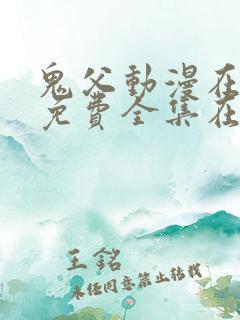 鬼父動漫在
免費全集在
王銘
未经同意禁止转载